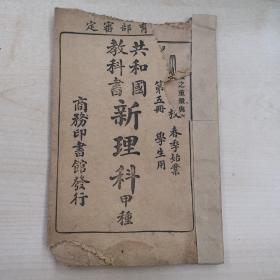 育部審定
之重量與
校 春季始業
第五冊 學生用
共和國
教科書
新理科
甲種
商務印書館發行